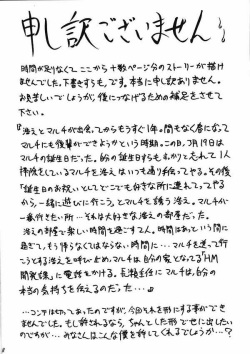 申し訳ございません
時間が足りなくて、ここから十数ページ分のストーリーが描け
ませんでした。下書きすらも、です。本当に申し訳ありません。
お見苦しいでしょうが、後につなげるための補足をさせて
下さい。
『浩之とマルチが出会ってからもうすぐ1年。間もなく春になって
マルチにも後輩ができようかという時期。この日、2月19日は
マルチの誕生日だった。自分の誕生日すらも、すっかり忘れて1人
掃除をしているマルチを浩之はいつも通り手伝ってやる。その後
「誕生日のお祝いとしてどこでも好きな所に連れてってやる
から、一緒に遊びに行こう。」とマルチを誘う浩之。マルチが
一番行きたい所…それは大好きな浩之の部屋だった。
浩之の部屋で楽しい時間を過ごす2人。時間はあっという間に
過ぎて、もう帰らなくてはならない時間に…マルチを送って行
こうとする浩之を呼び止め、マルチは自分の家となる「HM
開発課」に電話をかける。長瀬主任にマルチは、自分の
本当の気持ちを伝えるのだった…。』
…コンテは切ってあったのですが、今回それを形にする事ができ
ませんでした。もし許されるなら、ちゃんとした形で世に出したい
のですが…みなさんはこんな僕を許してくれるでしょうか…？